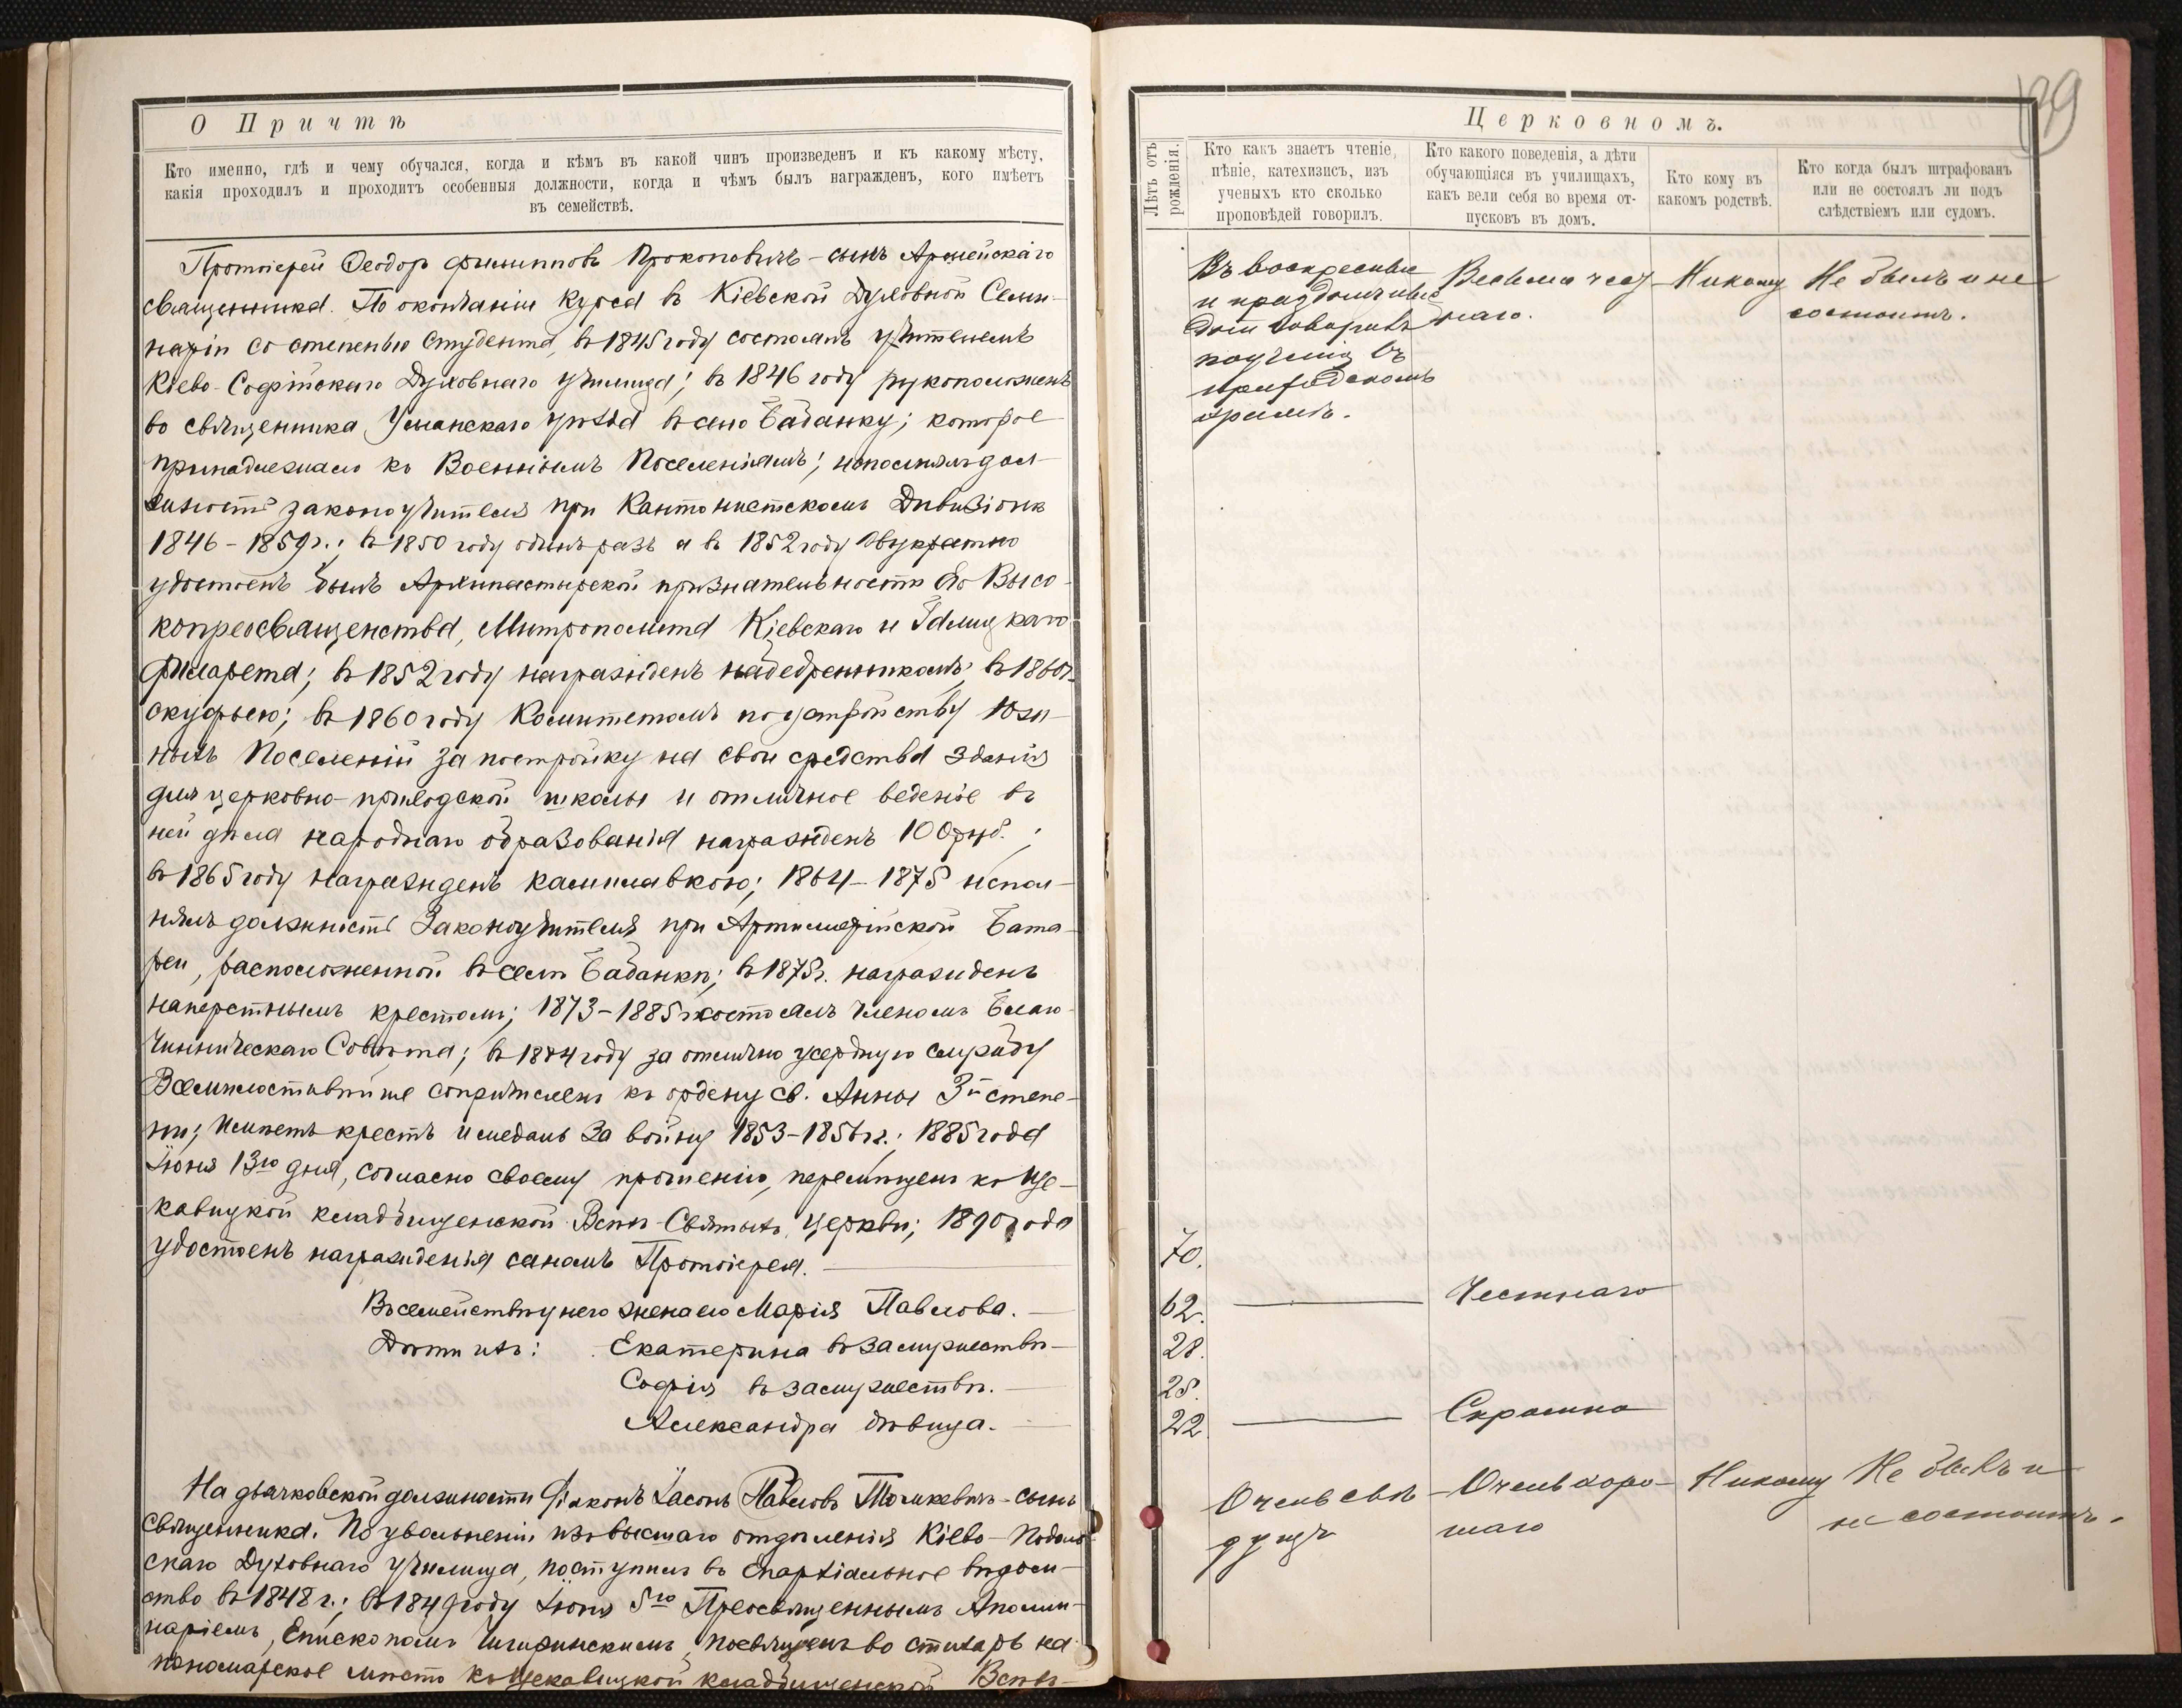 О Причтѣ
Кто именно, гдѣ и чему обучался, когда и кѣмъ въ какой чинъ произведенъ и къ какому мѣсту,
какія проходилъ и проходитъ особенныя должности, когда и чѣмъ былъ награжденъ, кого имѣетъ
въ семействѣ.
Протоіерей Ѳеодоръ Филипповъ Прокоповичъ - сынъ Армейскаго
священника. По окончаніи курса въ Кіевской Духовной Семи-
наріи со степенью студента, въ 1845 году состоялъ учителемъ
Кіево-Софійскаго Духовнаго училища; въ 1846 году рукоположенъ
во священника Уманскаго уѣзда въ село Бабанку; которое
принадлежало къ Военнымъ Поселеніямъ; исполнялъ дол-
жность законоучителя при Кантонистскомъ Дивизіонѣ
1846-1859 г.; въ 1850 году одинъ разъ а въ 1852 году двукратно
удостоенъ былъ Архипастырской признательности Его Высо-
копреосвященства, Митрополита Кіевскаго и Галицкаго
Филарета; въ 1852 году награжденъ набедренникомъ; въ 1860 г.
скуфьею; въ 1860 году Комитетомъ по устройству Юж-
ныхъ Поселеній за постройку на свои средства зданія
для церковно-приходской школы и отличное веденіе въ
ней дѣла народнаго образованія награжденъ 100 руб.;
въ 1865 году награжденъ камилавкою; 1864-1875 испол-
нялъ должность Законоучителя при Артиллерійской Бата-
реи, расположенной въ селѣ Бабанкѣ; въ 1875 г. награжденъ
наперстнымъ крестомъ; 1873-1885 г. состоялъ членомъ Благо-
чинническаго Совѣта; въ 1884 году за отлично усердную службу
Всемилостивѣйше сопричисленъ къ ордену св. Анны 3й степе-
ни; Имѣетъ крестъ и медаль за войну 1853-1856 гг.; 1885 года
Іюня 13го дня, согласно своему прошенію, перемѣщенъ къ Ще-
кавицкой кладбищенской Всѣхъ-Святыхъ церкви; 1890 года
удостоенъ награжденія саномъ Протоіерея.
Въ семействѣ у него жена его Марія Павлова.
Дѣти ихъ: Екатерина въ замужествѣ
Софія въ замужествѣ.
Александра дѣвица.
На дьячковской должности Діаконъ Іасонъ Павловъ Толкевичъ - сынъ
священника. По увольненіи изъ высшаго отдѣленія Кіево-Подоль-
скаго Духовнаго училища, поступилъ въ Епархіальное вѣдом-
ство въ 1848 г.; въ 1849 году Іюня 5го Преосвященнымъ Аполли-
наріемъ, Епископомъ Чигиринскимъ, посвященъ во стихарь на
пономарское мѣсто къ Щекавицкой кладбищенской Всѣхъ-
Церковномъ.
Лѣтъ отъ рожденія.
Кто какъ знаетъ чтеніе,
пѣніе, катехизисъ, изъ
ученыхъ кто сколько
проповѣдей говорилъ.
Кто какого поведенія, а дѣти
обучающіяся въ училищахъ,
какъ вели себя во время от-
пусковъ въ домъ.
Кто кому въ
какомъ родствѣ.
Кто когда былъ штрафованъ
или не состоялъ ли подъ
слѣдствіемъ или судомъ.
Въ воскресные
и праздничные
дни говоритъ
поученія въ
приходскомъ
храмѣ.
Весьма чест-
наго.
Никому
Не былъ и не
состоитъ.
70.
62. Честнаго
28.
25.
22. Скромна
Очень свѣ-
дущъ
Очень хоро-
шаго
Никому
Не былъ и
не состоитъ.